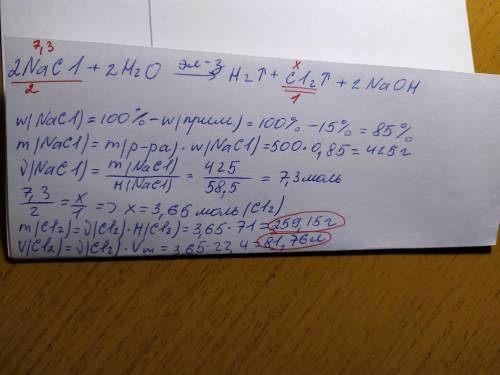 7,3 x
2NaCl + 2H₂O —эл-з→ H₂↑ + Cl₂↑ + 2NaOH
2 1
w(NaCl) = 100% - w(прим.) = 100% - 15% = 85%
m(NaCl) = m(р-ра) · w(NaCl) = 500 · 0,85 = 425г
ν(NaCl) = m(NaCl)/M(NaCl) = 425/58,5 = 7,3 моль
7,3/2 = x/1 => x = 3,65 моль (Cl₂)
m(Cl₂) = ν(Cl₂) · M(Cl₂) = 3,65 · 71 = 259,15г
V(Cl₂) = ν(Cl₂) · Vm = 3,65 · 22,4 = 81,76л